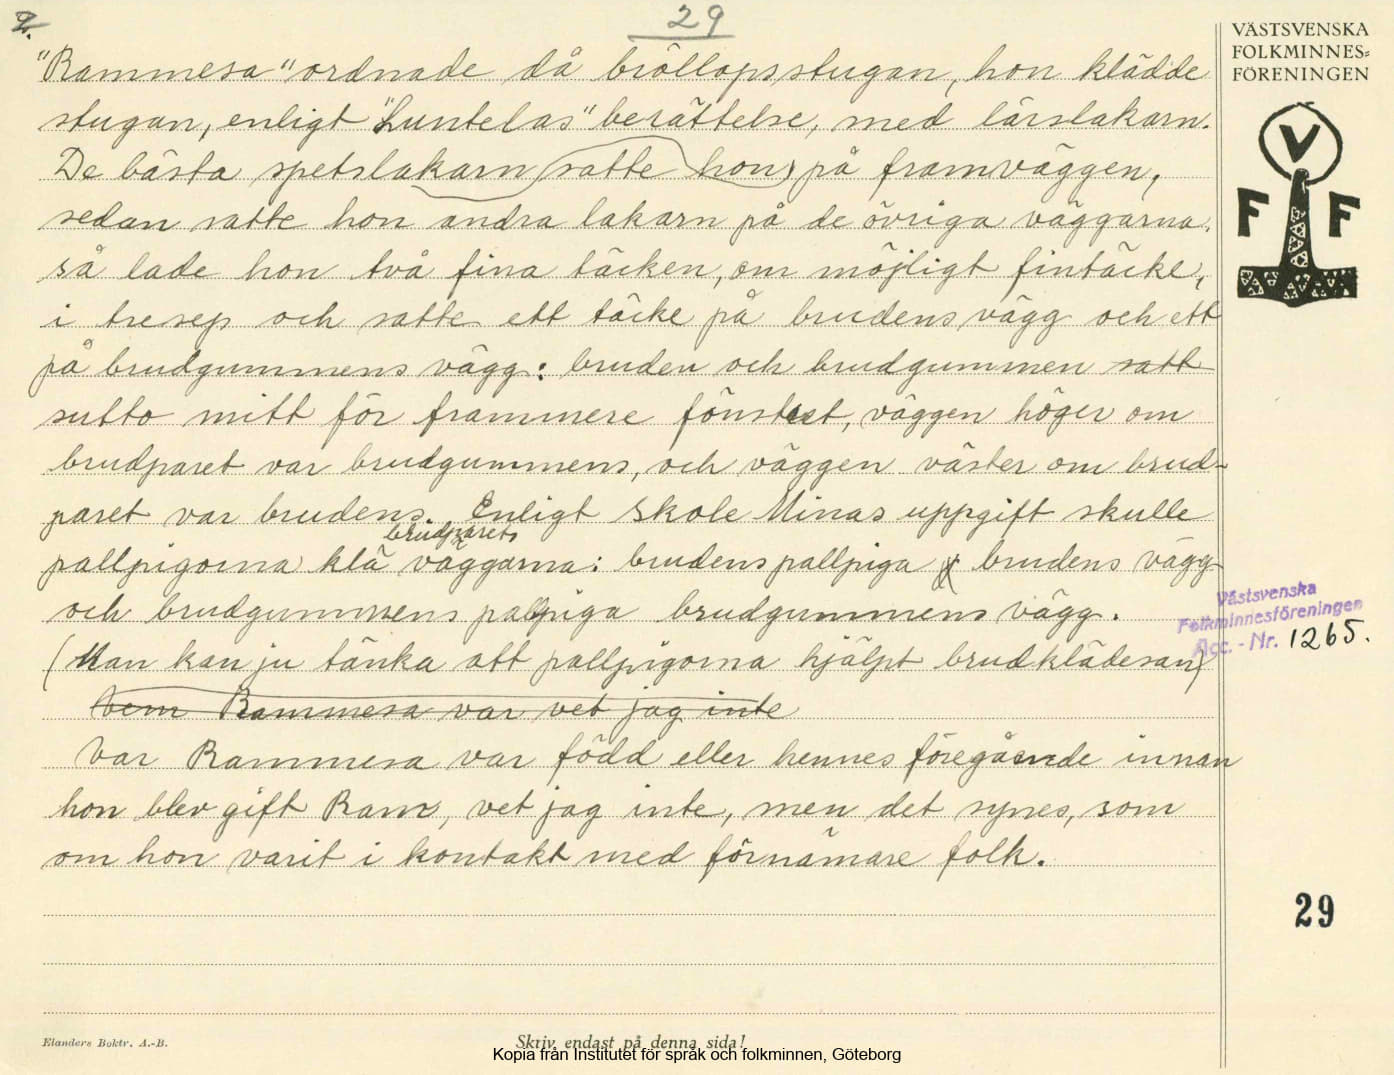 2.
29
"Rammesa" ordnade då bröllopsstugan, hon klädde
stugan, enligt "Luntelas" berättelse, med lärslakarn.
De bästa spetslakarn satte hon på framväggen,
sedan satte hon andra lakarn på de övriga väggarna,
så lade hon två fina täcken, om möjligt fintäcke,
i tresep och satte ett täcke på brudens vägg och ett
på brudgummens vägg: bruden och brudgummen satt
sutto mitt för frammere fönstret, väggen höger om
brudparet var brudgummens, och väggen väster om brud-
paret var brudens. Enligt Skole Minas uppgift skulle
brudparets
pallpigorna klä väggarna: brudens pallpiga brudens vägg
och brudgummens pallpiga brudgummens vägg.
(Man kan ju tänka att pallpigorna hjälpt brudklädesan)
Vem Rammesa var vet jag inte
Var Rammesa var född eller hennes föregående innan
hon blev gift Ram, vet jag inte, men det synes, som
om hon varit i kontakt med förnämare folk.
VÄSTSVENSKA
FOLKMINNES=
FÖRENINGEN
V
F F
Västsvenska
Folkminnesföreningen
Acc. - Nr. 1265.
29
Elanders Boktr. A.-B.
Skriv endast på denna sida!
Kopia från Institutet för språk och folkminnen, Göteborg